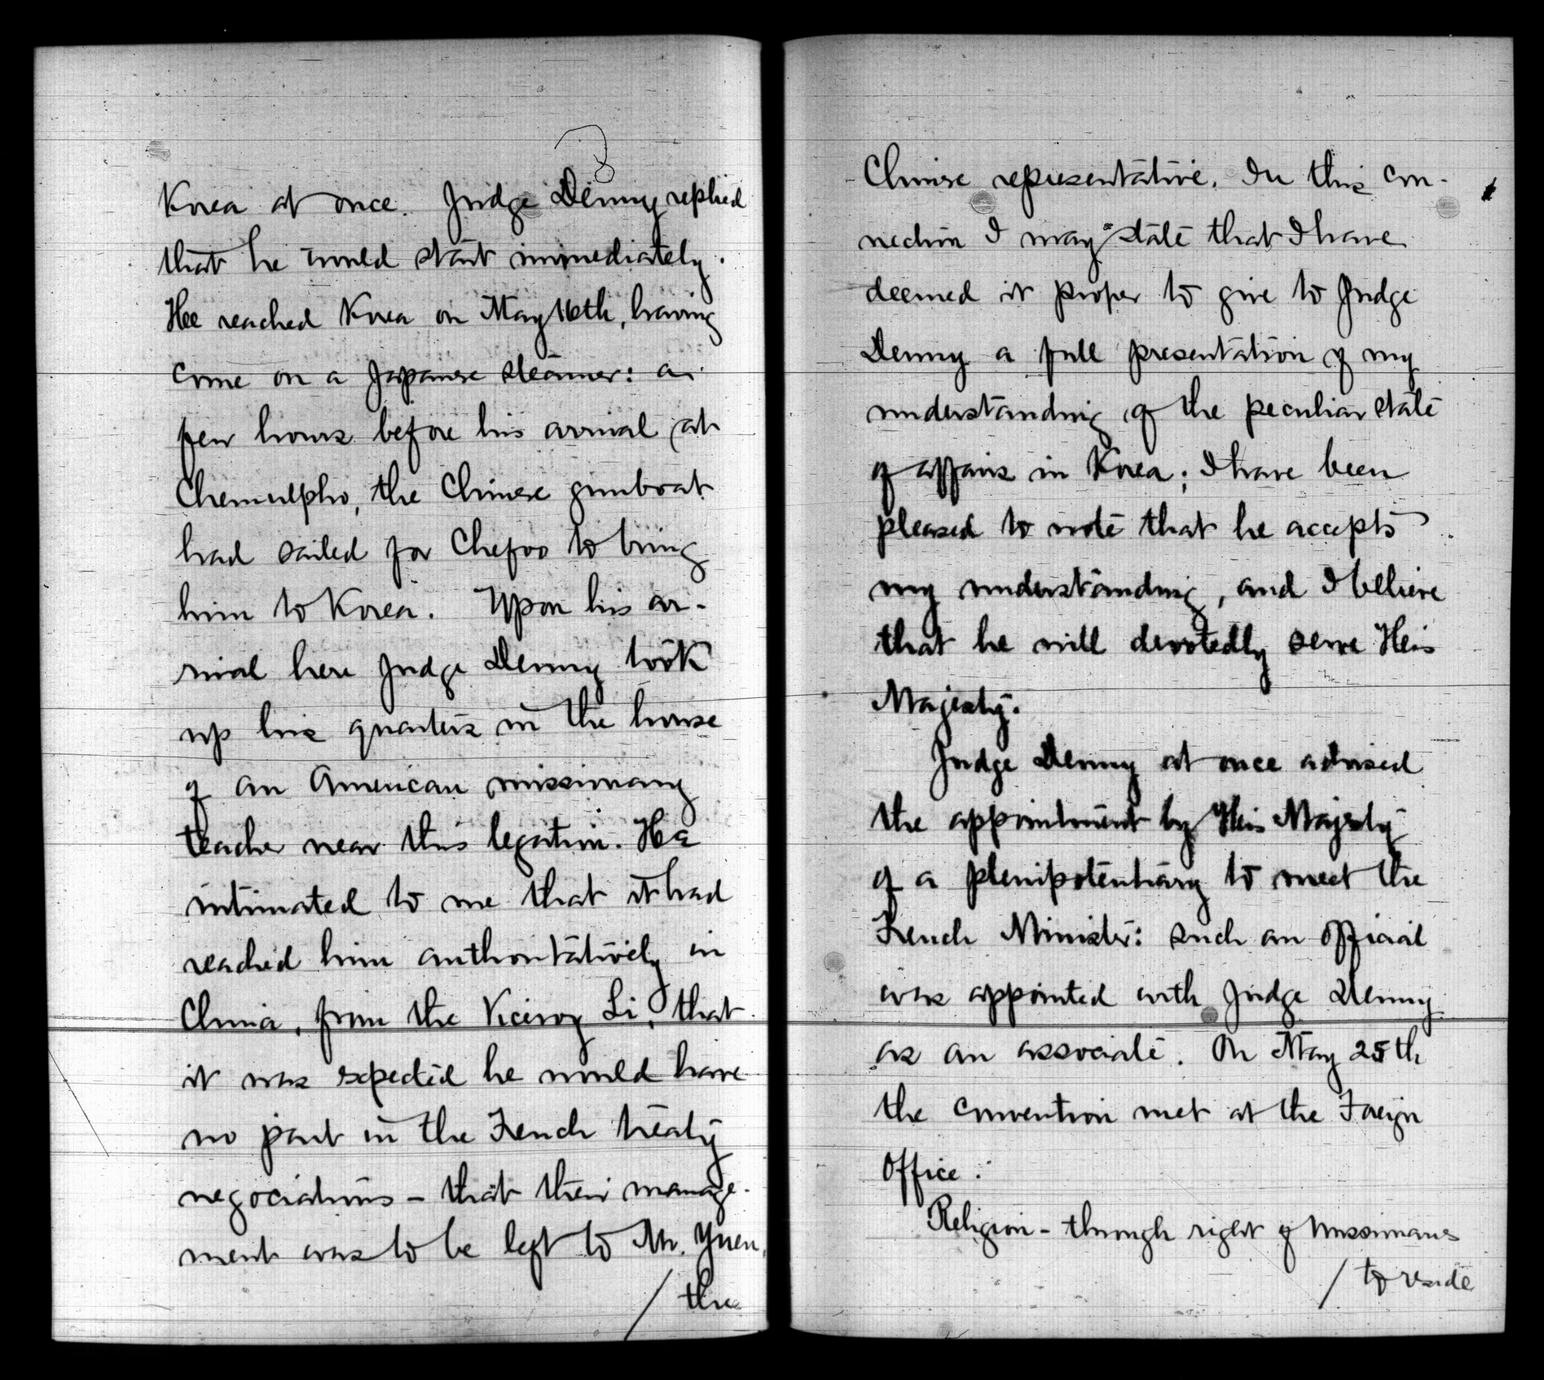 Korea at once. Judge Denny replied
that he would start immediately.
Hee reached Korea on May 16th, having
come on a Japanese steamer: a
few hours before his arrival at
Chemulpho, the Chinese gunboat
had sailed for Chefoo to bring
him to Korea. Upon his ar-
rival here Judge Denny took
up his quarters in the house
of an American missionary
teacher near this legation. He
intimated to me that it had
reached him authoritatively in
China, from the Viceroy Li, that
it was expected he would have
no part in the French treaty
negociations - that their manage-
ment was to be left to Mr. Yuen,
/ the
Chinese representative. In this con-
nection I may state that I have
deemed it proper to give to Judge
Denny a full presentation of my
understanding of the peculiar state
of affairs in Korea; I have been
pleased to note that he accepts
my understanding, and I believe
that he will devotedly serve His
Majesty.
Judge Denny at once advised
the appointment by His Majesty
of a plenipotentiary to meet the
French Minister: such an official
was appointed with Judge Denny
as an associate. On May 25th
the convention met at the Foreign
Office:
Religion - through right of missionaries
/ to reside